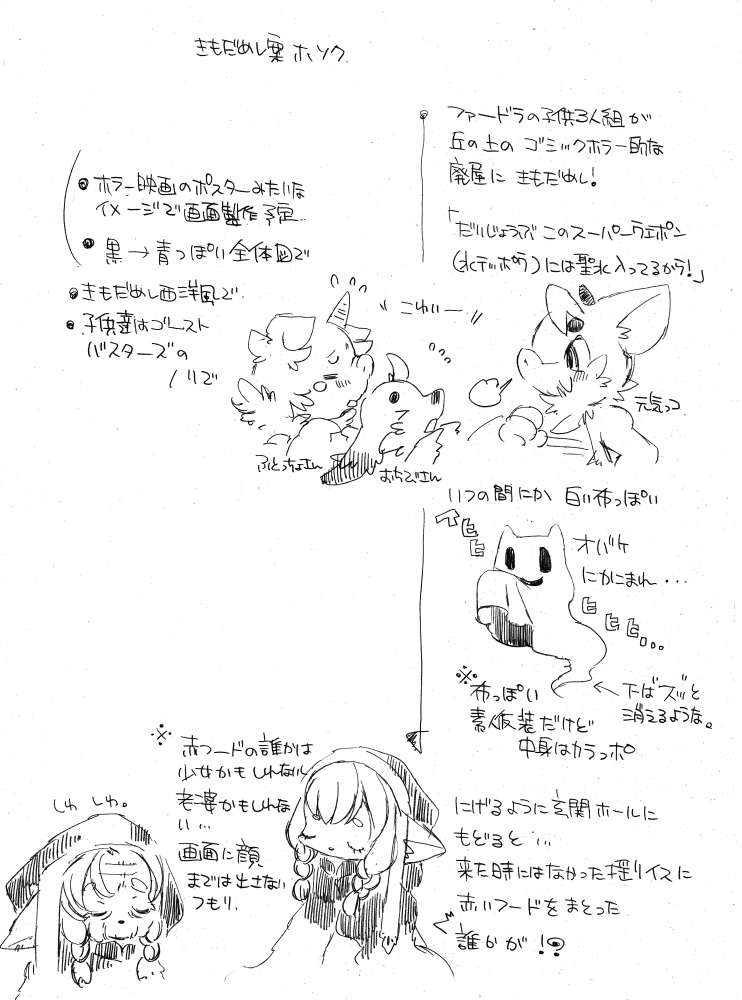 きもだめし案 ホソク
ファードラの子供3人組が
丘の上の ゴシックホラー的な
廃屋に きもだめし!
「だいじょうぶ このスーパーウェポン
(水テッポウ)には聖水入ってるから!」
●ホラー映画のポスターみたいな
イメージで画面製作予定..
●黒→青っぽい全体図で
●きもだめし西洋風で
●子供達はゴースト
バスターズの
ノリで
こわいー
元気っコ
ふとっちょさん
おちびさん
いつの間にか 白い布っぽい
オバケ
にかこまれ...
※布っぽい
素人仮装だけど
中身はカラッポ
←下はズッと
消えるような。
※赤フードの誰かは
少女かもしれないし
老婆かもしれな
い...
画面に顔
までは出さない
つもり.
しわ しわ。
にげるように玄関ホールに
もどると...
来た時にはなかった揺りイスに
赤いフードをまとった
誰かが!?